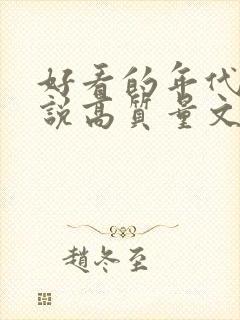 好看的年代
说高质量文
趙冬至